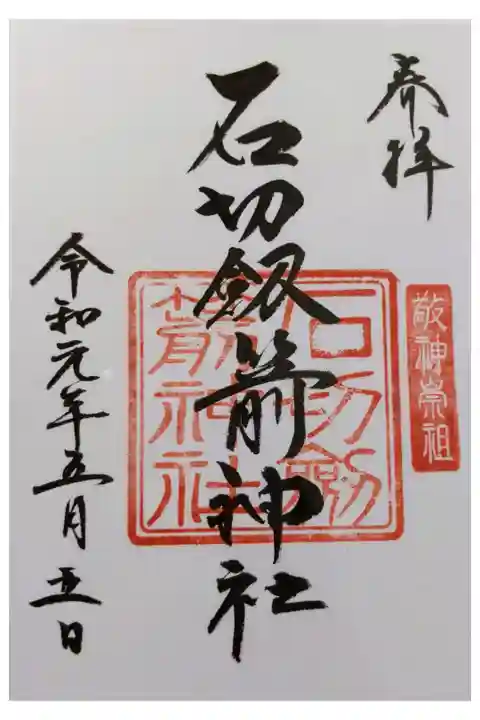 奉拝
敬神崇祖
石切劔箭神社
石切劔
箭神社
令和元年五月五日